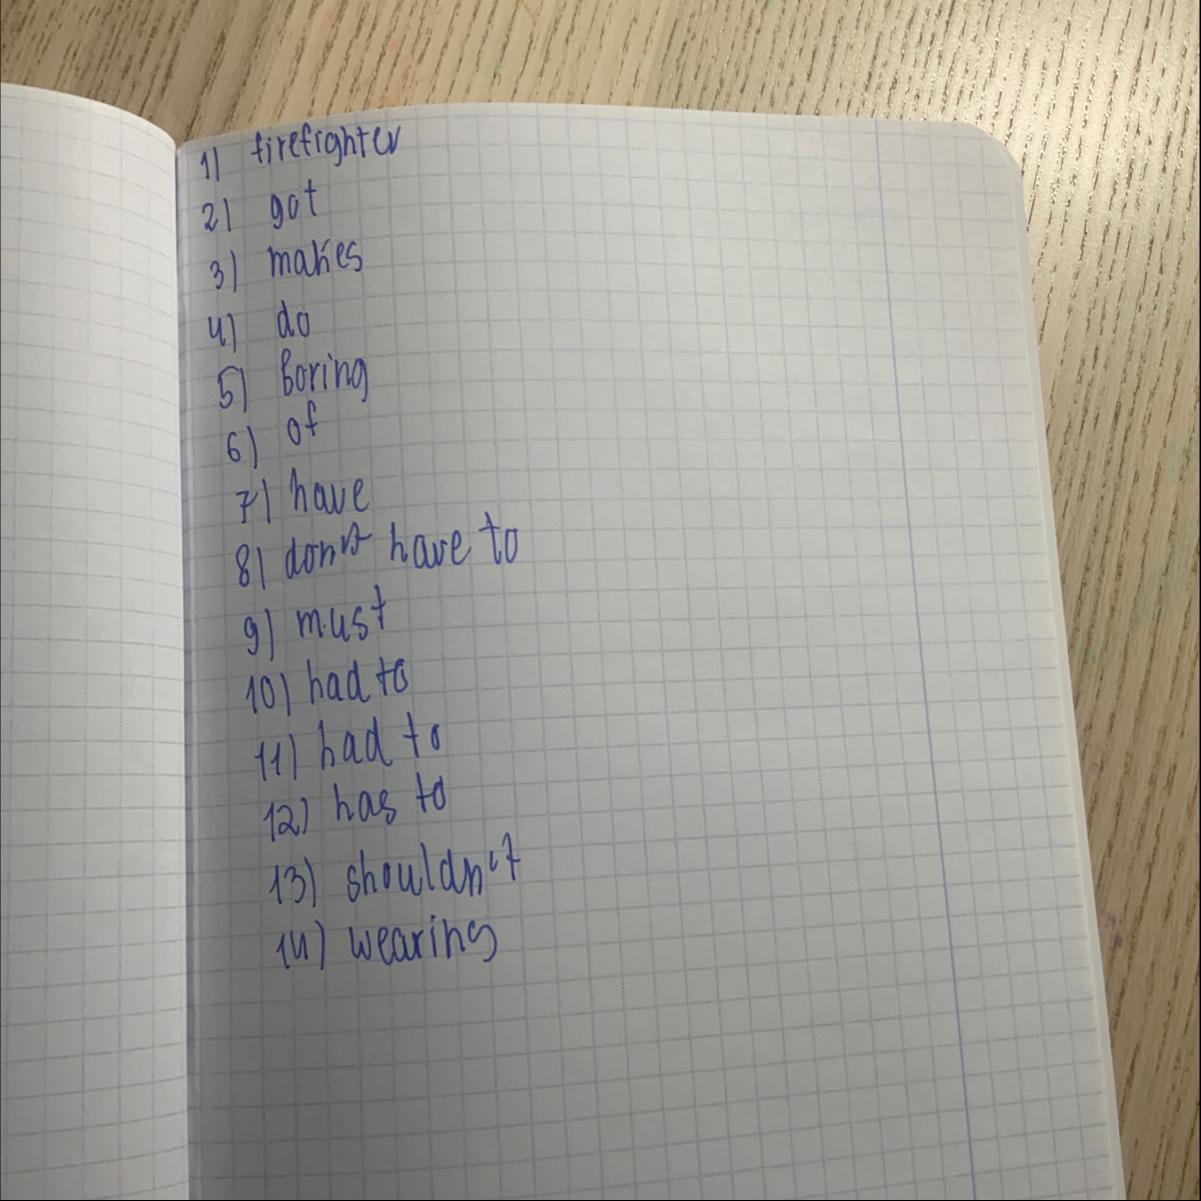 1) firefighter
2) got
3) makes
4) do
5) boring
6) of
7) have
8) don't have to
9) must
10) had to
11) had to
12) has to
13) shouldn't
14) wearing